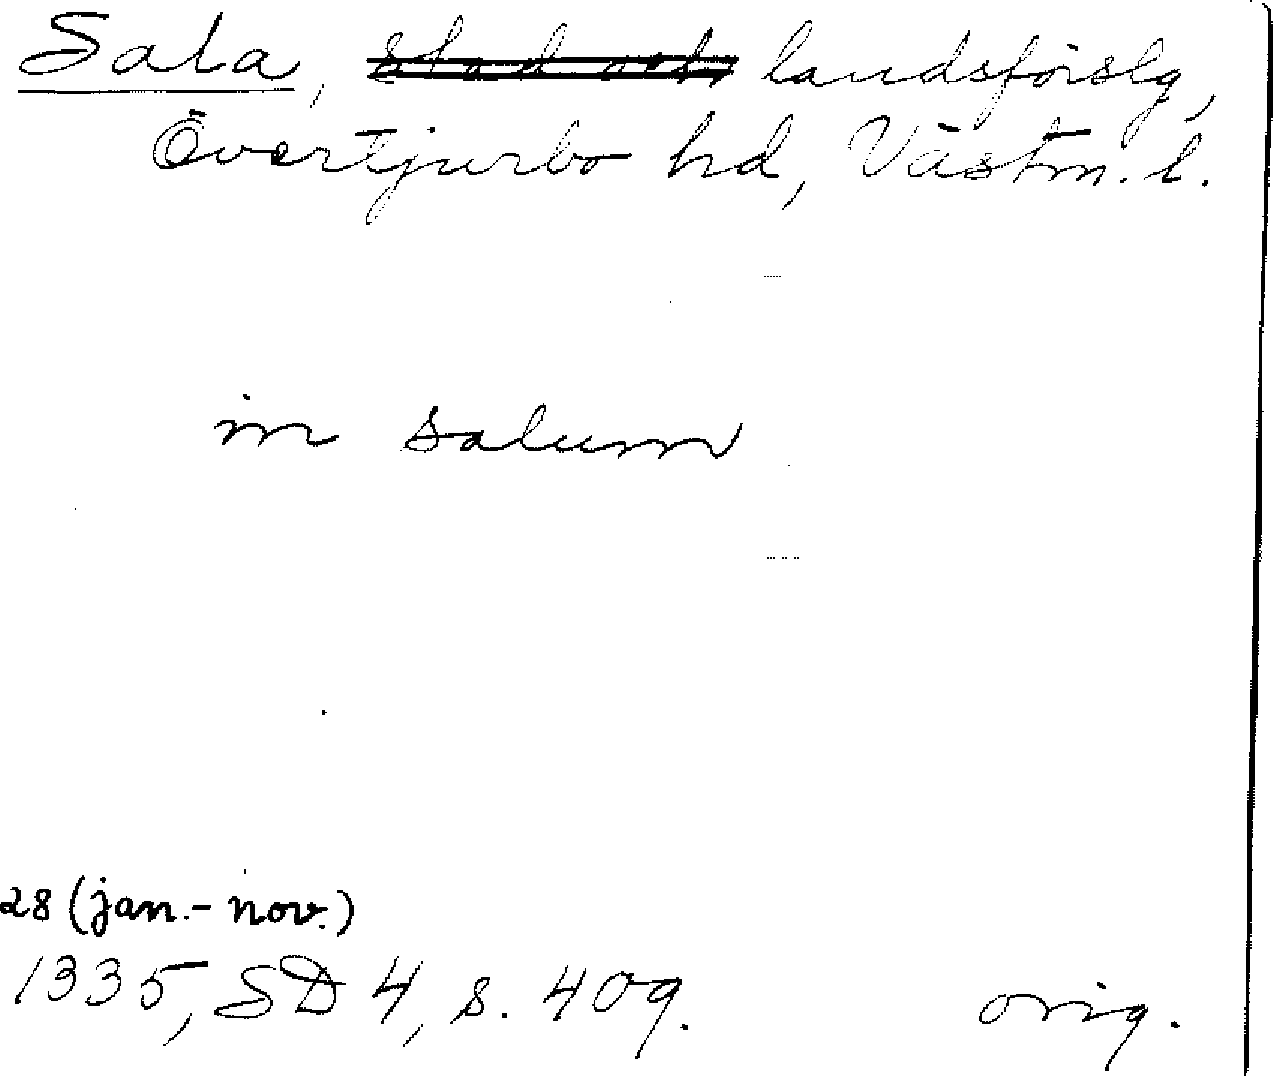 Sala, stad och landsförslg,
Övertjurbo hd, Västm. l.
in salum
28 (jan.- nov.)
1335, SD 4, s. 409.
orig.